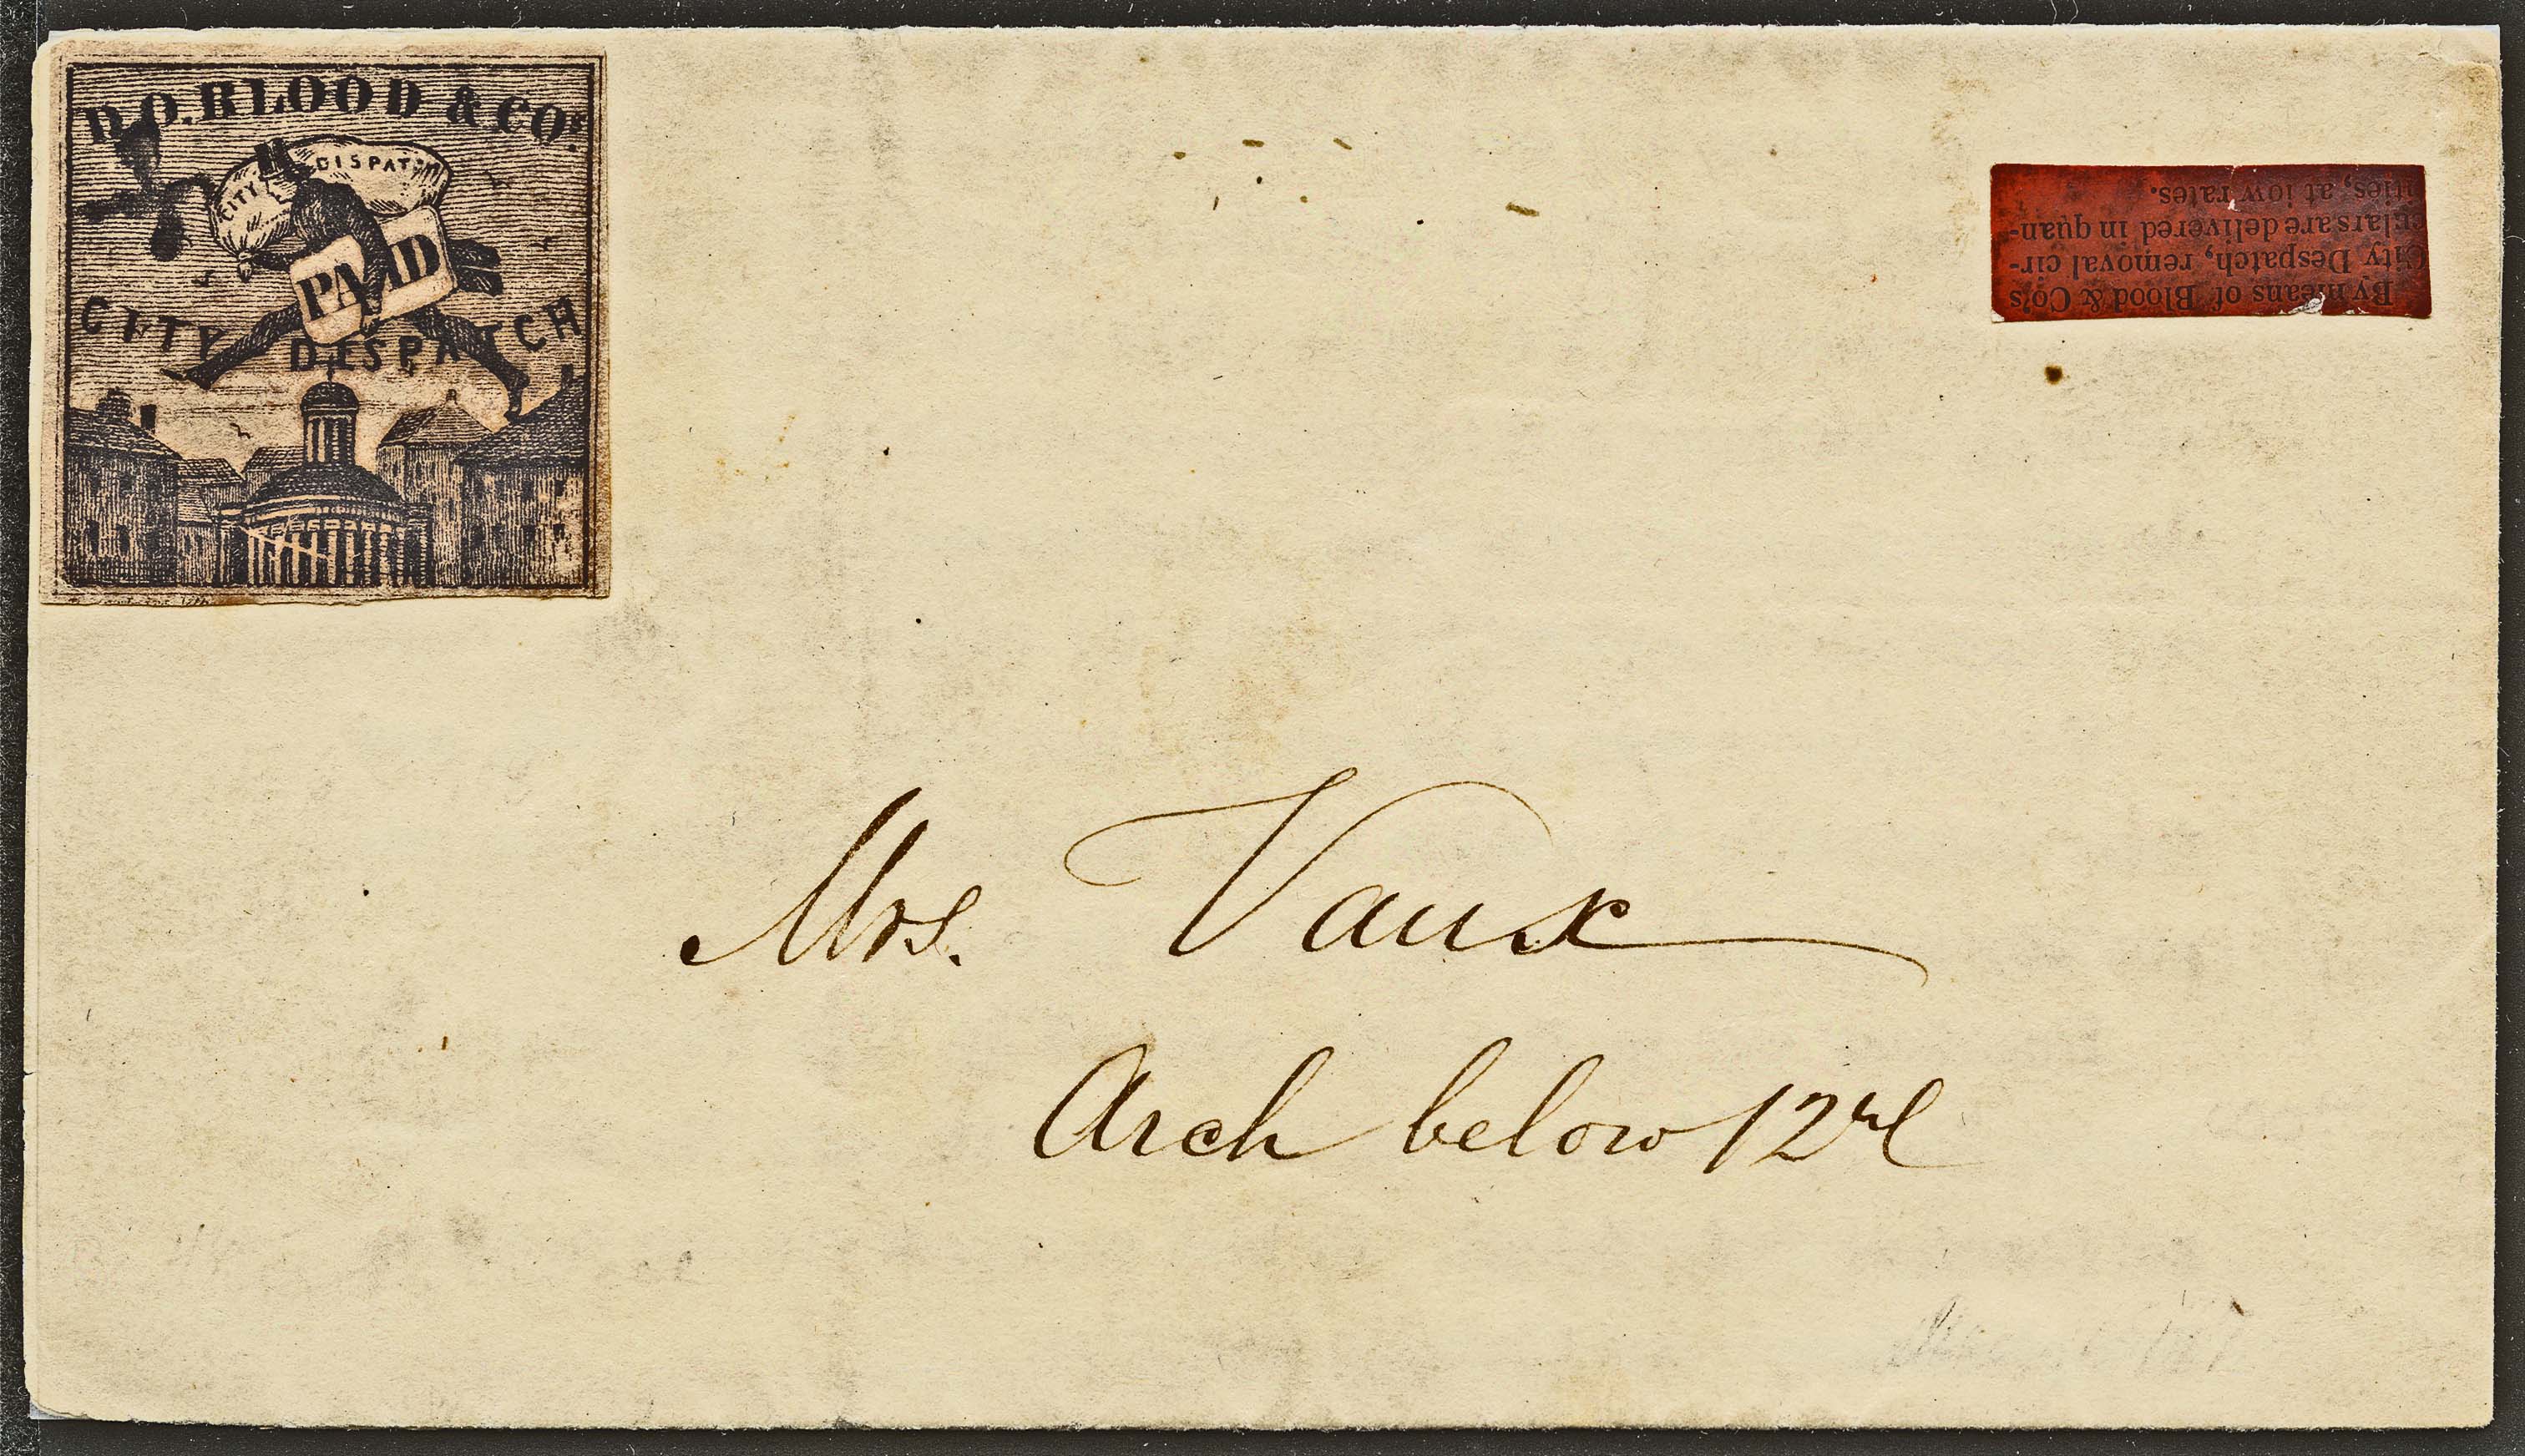 D.O. BLOOD & CO'S
CITY DISPATCH
PAID
CITY DESPATCH
By means of Blood & Co's
City Despatch, removal cir-
culars are delivered in quan-
tities, at low rates.
Mrs. Vaux
Arch below 12th